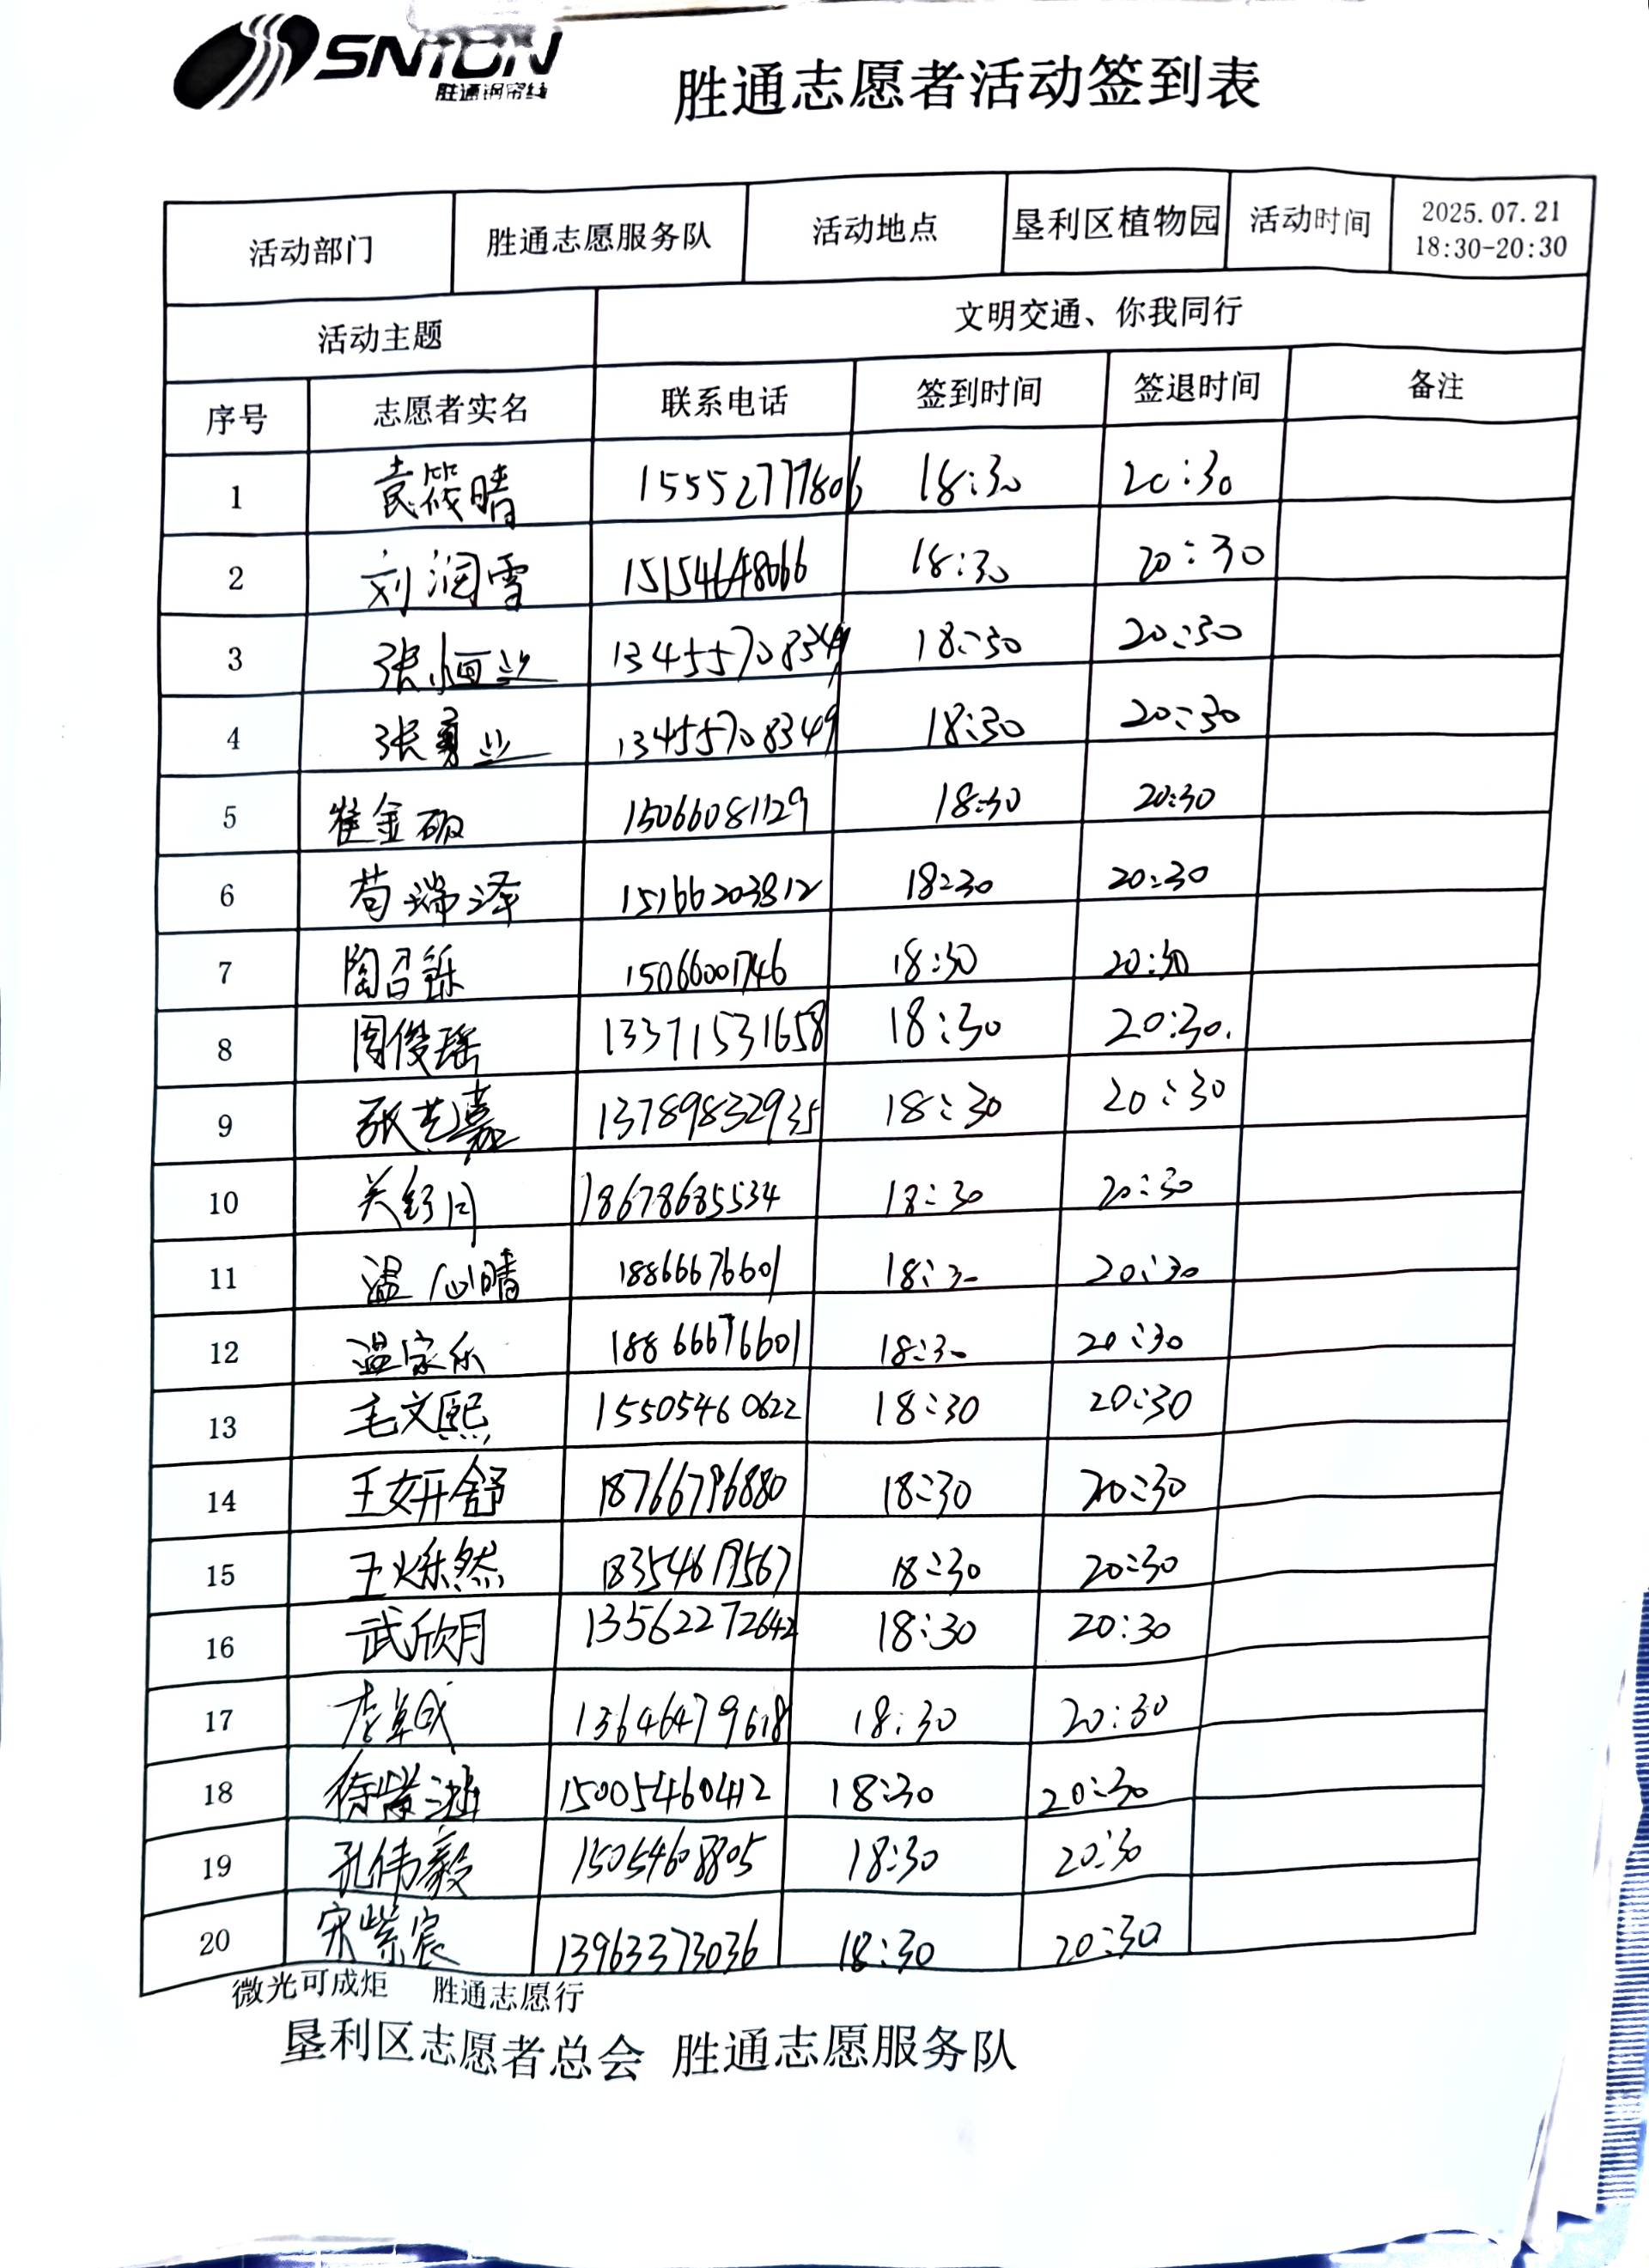 SNTON
胜通钢帘线
胜通志愿者活动签到表
活动部门 胜通志愿服务队 活动地点 垦利区植物园 活动时间 2025.07.21 18:30-20:30
活动主题 文明交通、你我同行
序号 志愿者实名 联系电话 签到时间 签退时间 备注
1 袁筱晴 15552777806 18:30 20:30
2 刘润雪 15154648066 18:30 20:30
3 张恒业 18:30 20:30
4 张勇业 13455708349 18:30 20:30
5 崔金硕 15066081129 18:30 20:30
6 苟瑞泽 15166203812 18:30 20:30
7 陶召铄 15066001746 18:30 20:30
8 周俊瑶 13371531658 18:30 20:30.
9 张艺嘉 13789832935 18:30 20:30
10 关舒月 18678685534 18:30 20:30
11 温心晴 18866676601 18:30 20:30
12 温家乐 18866676601 18:30 20:30
13 毛文熙 15505460622 18:30 20:30
14 王妍舒 18766796880 18:30 20:30
15 王烁然 18:30 20:30
16 武欣月 13562272642 18:30 20:30
17 李卓成 13646479618 18:30 20:30
18 徐 15005460412 18:30 20:30
19 孔伟毅 15054608805 18:30 20:30
20 宋紫宸 13963373036 18:30 20:30
微光可成炬 胜通志愿行
垦利区志愿者总会 胜通志愿服务队